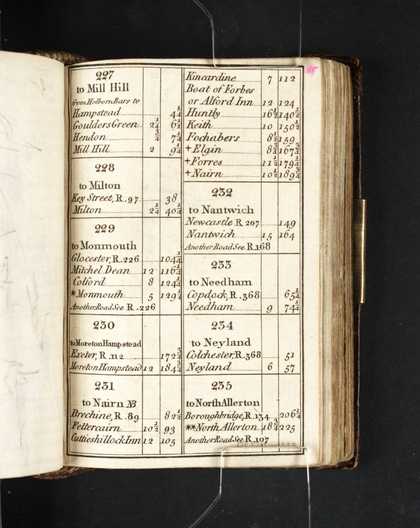 227
to Mill Hill
From Holborn Bars to
Hampstead 4¼
Goulders Green 2¼ 6½
Hendon ¾ 7¼
Mill Hill 2 9¼
228
to Milton
Key Street, R. 97 38
Milton 2¼ 40¼
229
to Monmouth
Glocester, R. 226 104¼
Mitchel Dean 12 116¼
Colford 8 124¼
*Monmouth 5 129¼
Another Road See R. 226
230
to Moreton Hampstead
Exeter, R. 112 172¾
Moreton Hampstead 12 184¾
231
to Nairn NB
Brechine, R. 89 82½
Fettercairn 10½ 93
Cuttieshillock Inn 12 105
Kincardine 7 112
Boat of Forbes
or Alford Inn 12 124
Huntly 16½ 140½
Keith 10 150½
Fochabers 8½ 159
+Elgin 8¾ 167¾
+Forres 11½ 179¼
+Nairn 10½ 189¾
232
to Nantwich
Newcastle R 207 149
Nantwich 15 164
Another Road See R. 168
233
to Needham
Copdock, R. 368 65¼
Needham 9 74¼
234
to Neyland
Colchester, R. 368 51
Neyland 6 57
235
to North Allerton
Boroughbridge, R. 134 206½
**North Allerton 18½ 225
Another Road See R. 107